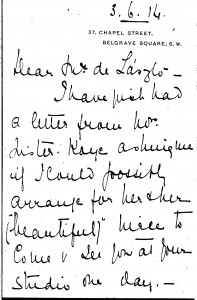 3.6.14.
37, CHAPEL STREET,
BELGRAVE SQUARE, S.W.
Dear Mr. de László –
I have just had
a letter from Mr.
Lister. Kaye asking me
if I could possibly
arrange for her & her
("beautiful") niece to
come & see you at your
studio one day. –